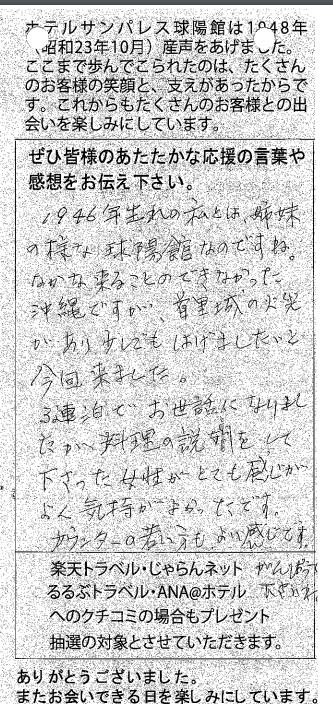 ホテルサンパレス球陽館は1948年
（昭和23年10月）産声をあげました。
ここまで歩んでこられたのは、たくさん
のお客様の笑顔と、支えがあったからで
す。これからもたくさんのお客様との出
会いを楽しみにしています。
ぜひ皆様のあたたかな応援の言葉や
感想をお伝え下さい。
1946年生れの私とは、姉妹
の様な球陽館なのですね。
なかな来ることのできなかった
沖縄ですが、首里城の火災
があり少しでもはげましたいと
今回来ました。
3連泊でお世話になりまし
たが、料理の説明をして
下さった女性がとても感じが
よく気持がよかったです。
カウンターの若い方もよい感じです。
がんばって
下さい
楽天トラベル・じゃらんネット
るるぶトラベル・ANA@ホテル
へのクチコミの場合もプレゼント
抽選の対象とさせていただきます。
ありがとうございました。
またお会いできる日を楽しみにしています。